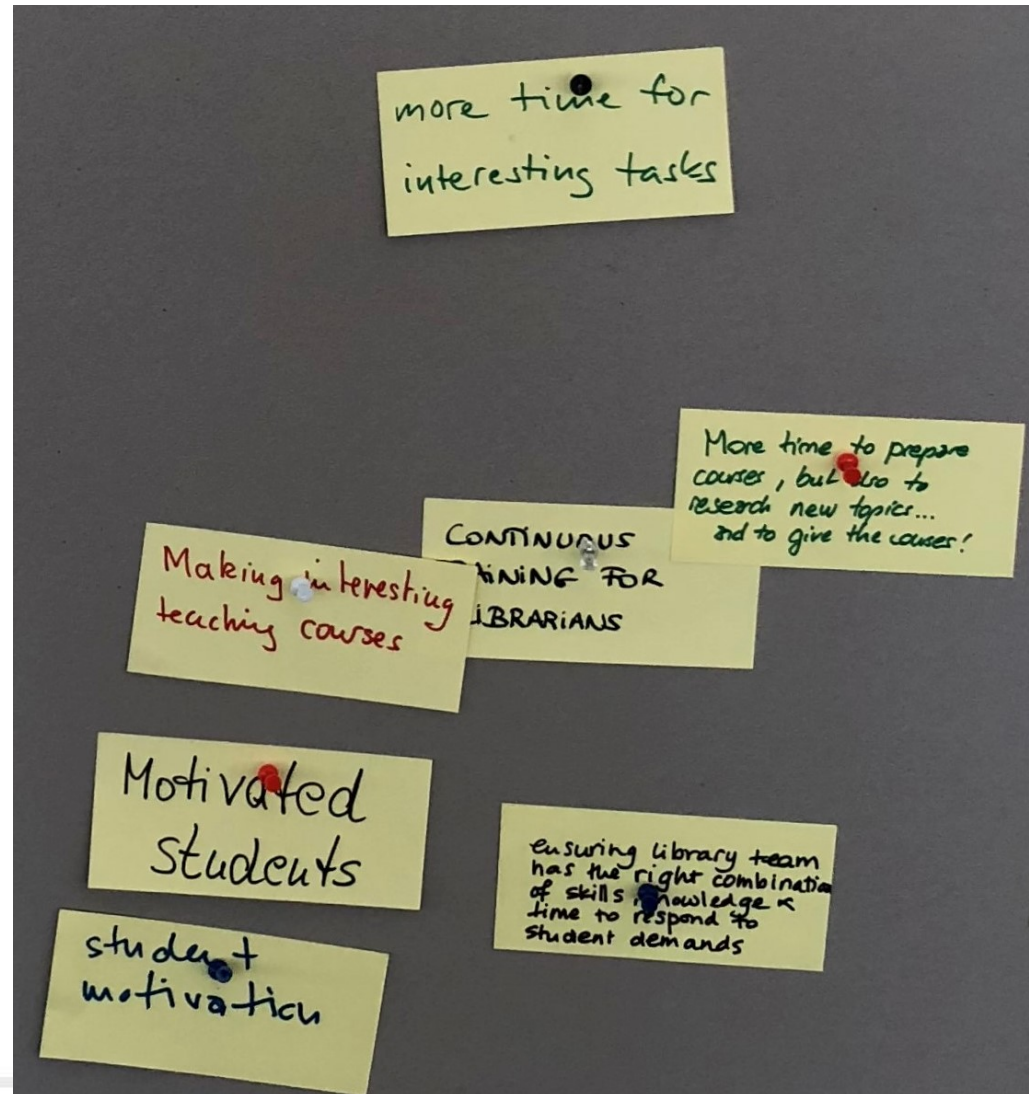 more time for
interesting tasks
More time to prepare
courses, but also to
research new topics...
and to give the courses!
CONTINUOUS
AINING FOR
IBRARIANS
Making interesting
teaching courses
Motivated
Students
ensuring library team
has the right combination
of skills, knowledge &
time to respond to
student demands
student
motivation